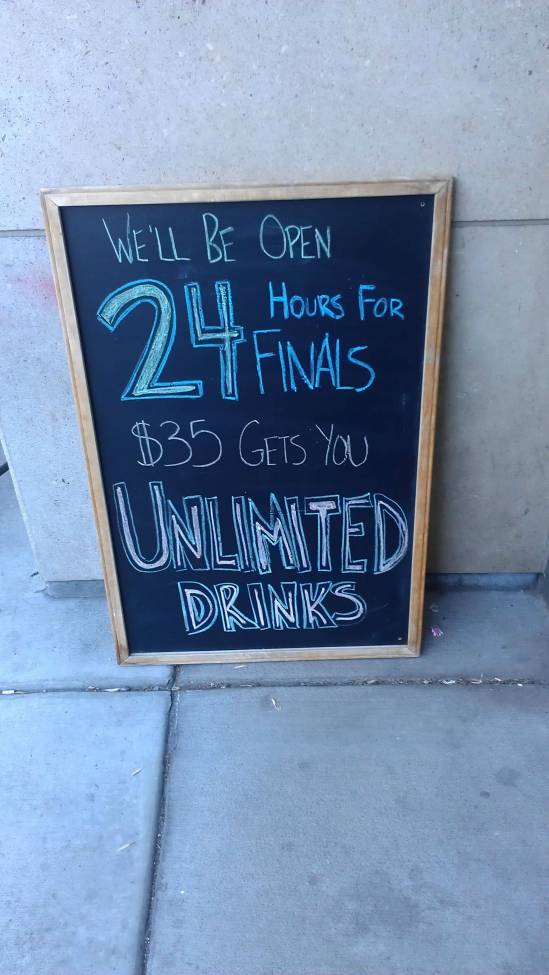 We'll Be Open
24 Hours For
Finals
$35 Gets You
Unlimited
Drinks